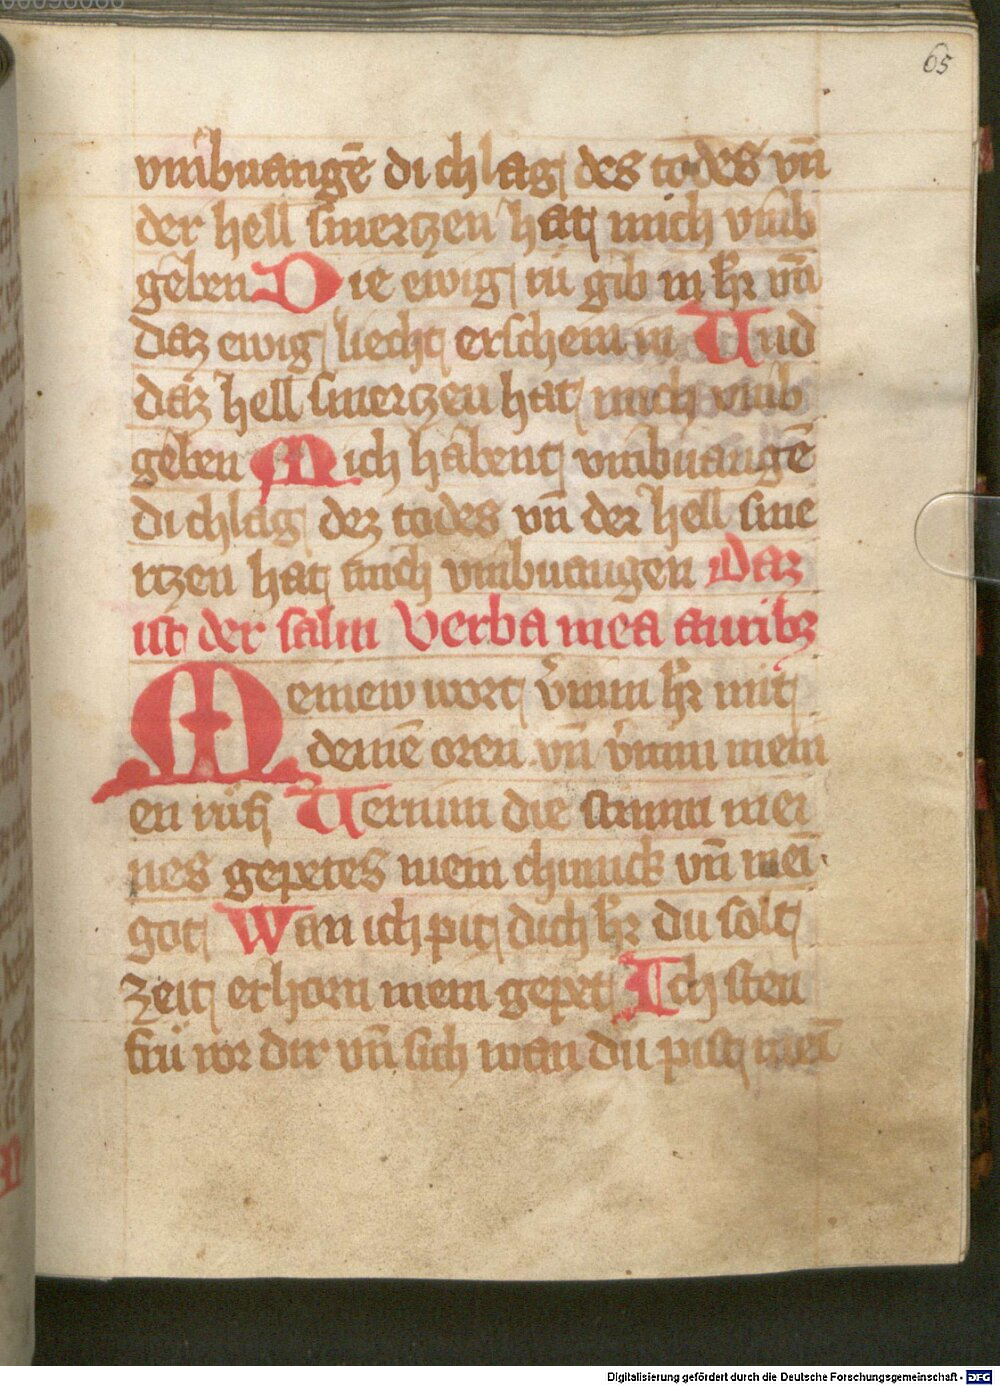 65
vmbuangē di chlag des todes vn̄
der hell smertzen hat mich vmb
geben Die ewig rů gib in hr̄ vn̄
daz ewig liecht erschein in Und
daz hell smertzen hat mich vmb
geben Mich habent vmbuangē
di chlag dez todes vn̄ der hell sme
rtzen hat mich vmbuangen Daz
ist der salm Verba mea auribꝫ
Meinew wort v̄nim hr̄ mit
deinē oren vn̄ v̄nim mein
en růf Uernim die stimm mei
nes gepetes mein chunick vn̄ meī
got Wan ich pit dich hr̄ du solt
zeit erhorn mein gepet Ich sten
frů vor dir vn̄ sich wan du pist meī
Digitalisierung gefördert durch die Deutsche Forschungsgemeinschaft - DFG